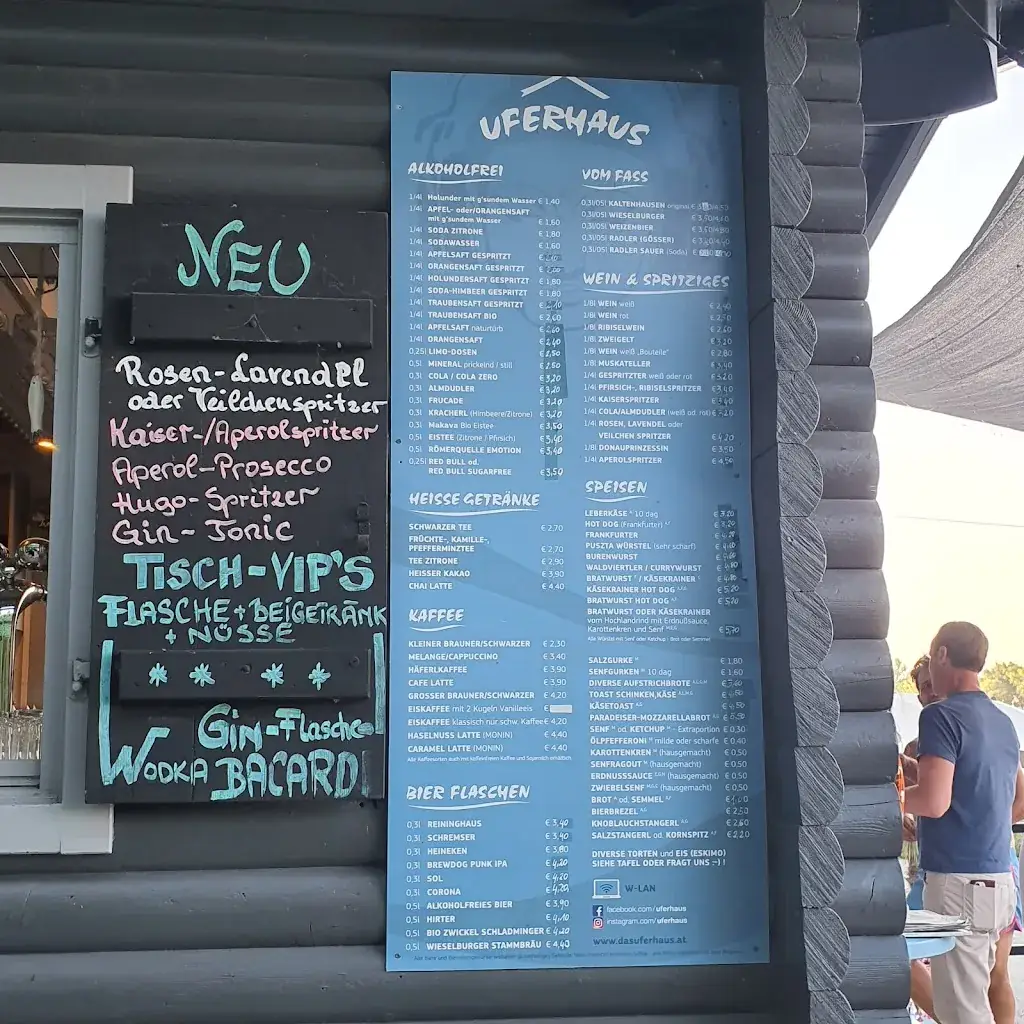 NEU
Rosen-Lavendel
oder Veilchenspritzer
Kaiser-/Aperolspritzer
Aperol-Prosecco
Hugo-Spritzer
Gin-Tonic
TISCH-VIP'S
FLASCHE+BEIGETRÄNK
+ NÜSSE
Gin-Flasche
WODKA BACARDI
UFERHAUS
ALKOHOLFREI
1/4l Holunder mit g'sundem Wasser € 1,40
1/4l APFEL- oder/ORANGENSAFT
mit g'sundem Wasser € 1,60
1/4l SODA ZITRONE € 1,80
1/4l SODAWASSER € 1,60
1/4l APFELSAFT GESPRITZT
1/4l ORANGENSAFT GESPRITZT
1/4l HOLUNDERSAFT GESPRITZT € 1,80
1/4l SODA-HIMBEER GESPRITZT € 1,80
1/4l TRAUBENSAFT GESPRITZT
1/4l TRAUBENSAFT BIO € 2,60
1/4l APFELSAFT naturtürb € 2,60
1/4l ORANGENSAFT € 2,40
0,25l LIMO-DOSEN € 2,50
0,5l MINERAL prickelnd / still € 2,50
0,3l COLA / COLA ZERO € 3,20
0,3l ALMDUDLER € 3,20
0,3l FRUCADE € 3,20
0,3l KRACHERL (Himbeere/Zitrone) € 3,20
0,3l Makava Bio Eistee € 3,50
0,5l EISTEE (Zitrone / Pfirsich) € 3,40
0,5l RÖMERQUELLE EMOTION € 3,40
0,25l RED BULL od.
RED BULL SUGARFREE € 3,50
HEISSE GETRÄNKE
SCHWARZER TEE € 2,70
FRÜCHTE-, KAMILLE-,
PFEFFERMINZTEE € 2,70
TEE ZITRONE € 2,90
HEISSER KAKAO € 3,90
CHAI LATTE € 4,40
KAFFEE
KLEINER BRAUNER/SCHWARZER € 2,30
MELANGE/CAPPUCCINO € 3,40
HÄFERLKAFFEE € 3,90
CAFE LATTE € 3,90
GROSSER BRAUNER/SCHWARZER € 4,20
EISKAFFEE mit 2 Kugeln Vanilleeis €
EISKAFFEE klassisch nur.schw. Kaffee € 4,20
HASELNUSS LATTE (MONIN) € 4,40
CARAMEL LATTE (MONIN) € 4,40
Alle Kaffeesorten auch mit koffeinfreien Kaffee und Sojamilch erhältlich
BIER FLASCHEN
0,3l REININGHAUS € 3,40
0,3l SCHREMSER € 3,40
0,3l HEINEKEN € 3,80
0,3l BREWDOG PUNK IPA € 4,20
0,3l SOL € 4,20
0,3l CORONA € 4,20
0,5l ALKOHOLFREIES BIER € 3,90
0,5l HIRTER € 4,10
0,5l BIO ZWICKEL SCHLADMINGER € 4,20
0,5l WIESELBURGER STAMMBRÄU € 4,40
VOM FASS
0,3l/05l KALTENHAUSEN original €
0,3l/05l WIESELBURGER
0,3l/05l WEIZENBIER
0,3l/05l RADLER (GÖSSER)
0,3l/05l RADLER SAUER (Soda) €
WEIN & SPRITZIGES
1/8l WEIN weiß € 2,40
1/8l WEIN rot
1/8l RIBISELWEIN € 2,60
1/8l ZWEIGELT € 3,20
1/8l WEIN weiß „Bouteile" € 2,80
1/8l MUSKATELLER € 3,40
1/4l GESPRITZTER weiß oder rot € 3,20
1/4l PFIRSICH-, RIBISELSPRITZER € 3,40
1/4l KAISERSPRITZER € 3,40
1/4l COLA/ALMDUDLER (weiß od. rot) € 3,20
1/4l ROSEN, LAVENDEL oder
VEILCHEN SPRITZER € 4,20
1/8l DONAUPRINZESSIN
1/4l APEROLSPRITZER € 4,50
SPEISEN
LEBERKÄSE 10 dag € 3,20
HOT DOG (Frankfurter) € 3,20
FRANKFURTER
PUSZTA WÜRSTEL (sehr scharf)
BURENWURST
WALDVIERTLER / CURRYWURST € 4,80
BRATWURST / KÄSEKRAINER
KÄSEKRAINER HOT DOG € 5,20
BRATWURST HOT DOG € 5,20
BRATWURST ODER KÄSEKRAINER
vom Hochlandrind mit Erdnußsauce,
Karottenkren und Senf € 5,70
Alle Würstel mit Senf oder Ketchup | Brot oder Semmel
SALZGURKE € 1,80
SENFGURKEN 10 dag € 1,60
DIVERSE AUFSTRICHBROTE
TOAST SCHINKEN,KÄSE
KÄSETOAST € 4,50
PARADEISER-MOZZARELLABROT € 5,50
SENF od. KETCHUP - Extraportion € 0,30
ÖLPFEFFERONI milde oder scharfe € 0,40
KAROTTENKREN (hausgemacht) € 0,50
SENFRAGOUT (hausgemacht) € 0,50
ERDNUSSSAUCE (hausgemacht) € 0,50
ZWIEBELSENF (hausgemacht) € 0,50
BROT od. SEMMEL
BIERBREZEL € 2,50
KNOBLAUCHSTANGERL € 2,60
SALZSTANGERL od. KORNSPITZ € 2,20
DIVERSE TORTEN und EIS (ESKIMO)
SIEHE TAFEL ODER FRAGT UNS :-) !
W-LAN
facebook.com/uferhaus
instagram.com/uferhaus
www.dasuferhaus.at